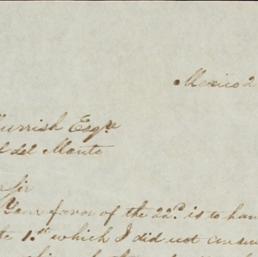 Mexico 2
urrish Esqr.
l del Monte
Sir
Your favor of the 22d. is to han
te 1st which I did not answ